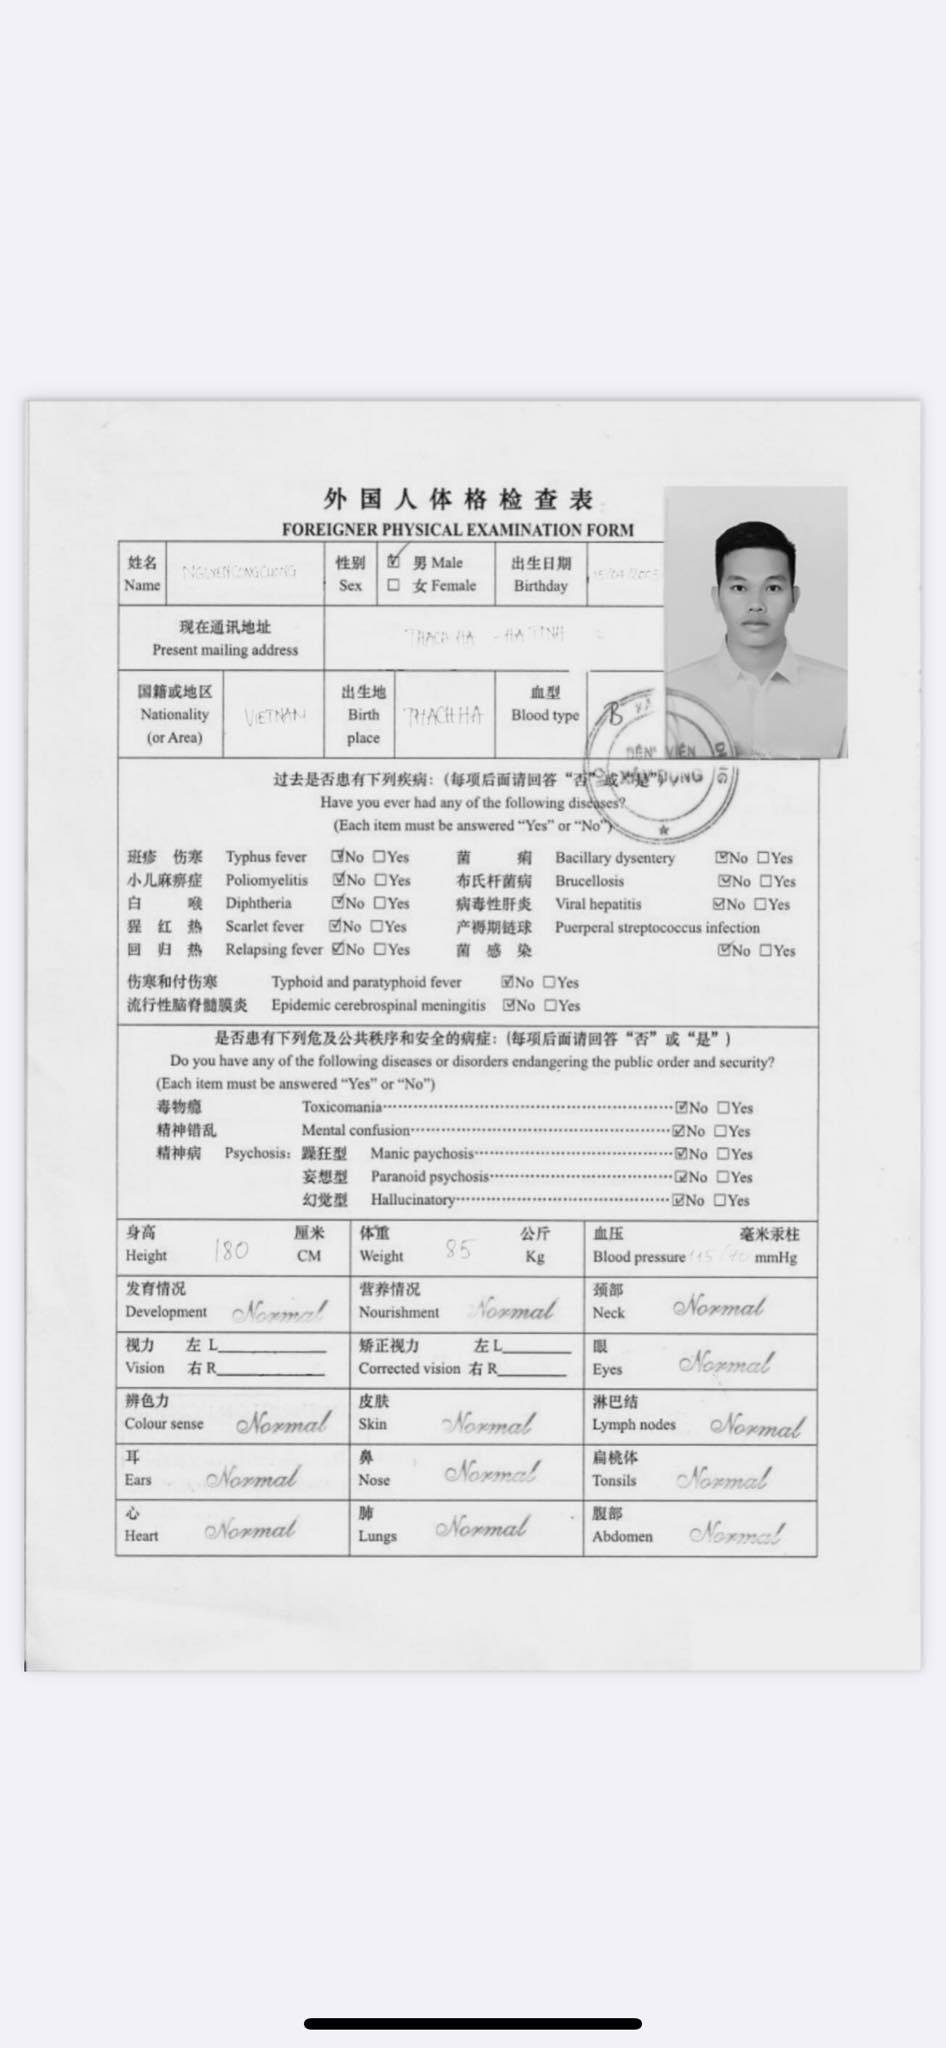 外国人体格检查表
FOREIGNER PHYSICAL EXAMINATION FORM
姓名 Name NGUYEN CONG CUONG 性别 Sex ☑ 男 Male ☐ 女 Female 出生日期 Birthday
现在通讯地址 Present mailing address THACH HA - HA TINH
国籍或地区 Nationality (or Area) VIETNAM 出生地 Birth place THACH HA 血型 Blood type B
VIỆN
XÂY DỰNG
过去是否患有下列疾病：(每项后面请回答“否”或“是”)
Have you ever had any of the following diseases?
(Each item must be answered “Yes” or “No”)
班疹 伤寒 Typhus fever ☑No ☐Yes 菌 痢 Bacillary dysentery ☑No ☐Yes
小儿麻痹症 Poliomyelitis ☑No ☐Yes 布氏杆菌病 Brucellosis ☑No ☐Yes
白 喉 Diphtheria ☑No ☐Yes 病毒性肝炎 Viral hepatitis ☑No ☐Yes
猩 红 热 Scarlet fever ☑No ☐Yes 产褥期链球 Puerperal streptococcus infection
回 归 热 Relapsing fever ☑No ☐Yes 菌 感 染 ☑No ☐Yes
伤寒和付伤寒 Typhoid and paratyphoid fever ☑No ☐Yes
流行性脑脊髓膜炎 Epidemic cerebrospinal meningitis ☑No ☐Yes
是否患有下列危及公共秩序和安全的病症：(每项后面请回答“否”或“是”)
Do you have any of the following diseases or disorders endangering the public order and security?
(Each item must be answered “Yes” or “No”)
毒物瘾 Toxicomania ☑No ☐Yes
精神错乱 Mental confusion ☑No ☐Yes
精神病 Psychosis: 躁狂型 Manic paychosis ☑No ☐Yes
妄想型 Paranoid psychosis ☑No ☐Yes
幻觉型 Hallucinatory ☑No ☐Yes
身高 厘米 体重 公斤 血压 毫米汞柱
Height 180 CM Weight 85 Kg Blood pressure mmHg
发育情况 营养情况 颈部
Development Normal Nourishment Normal Neck Normal
视力 左 L 矫正视力 左 L 眼
Vision 右 R Corrected vision 右 R Eyes Normal
辨色力 皮肤 淋巴结
Colour sense Normal Skin Normal Lymph nodes Normal
耳 鼻 扁桃体
Ears Normal Nose Normal Tonsils Normal
心 肺 腹部
Heart Normal Lungs Normal Abdomen Normal